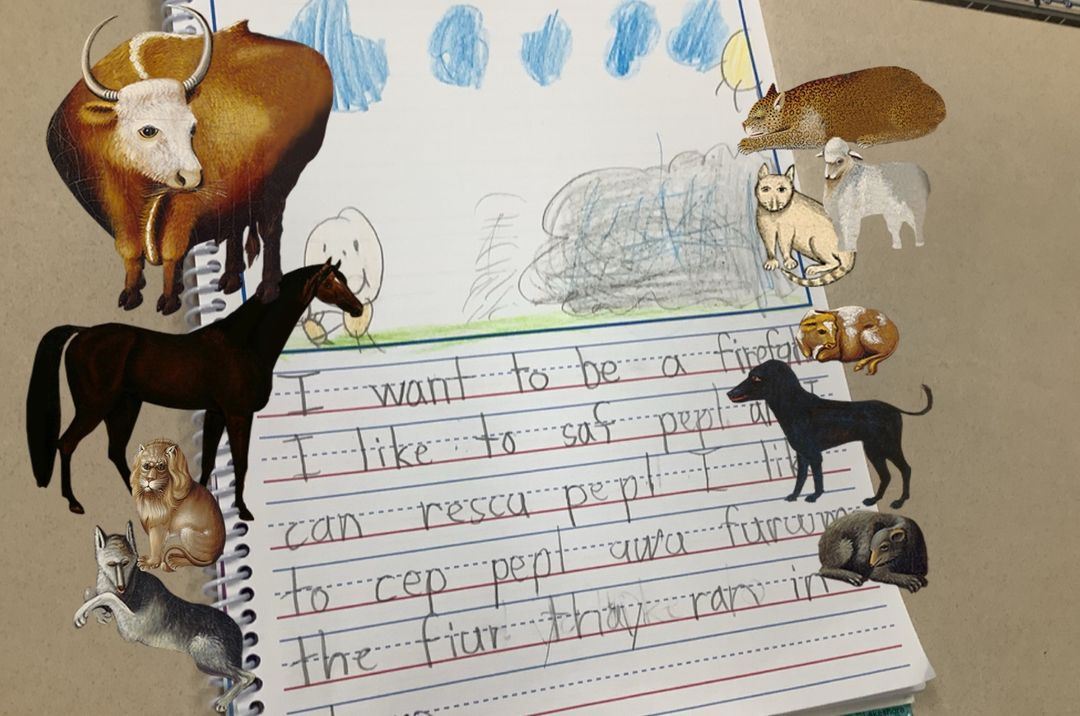 I want to be a
I like to saf pepl
can rescu pepl I
to cep pepl awa
the fiur thay ran in